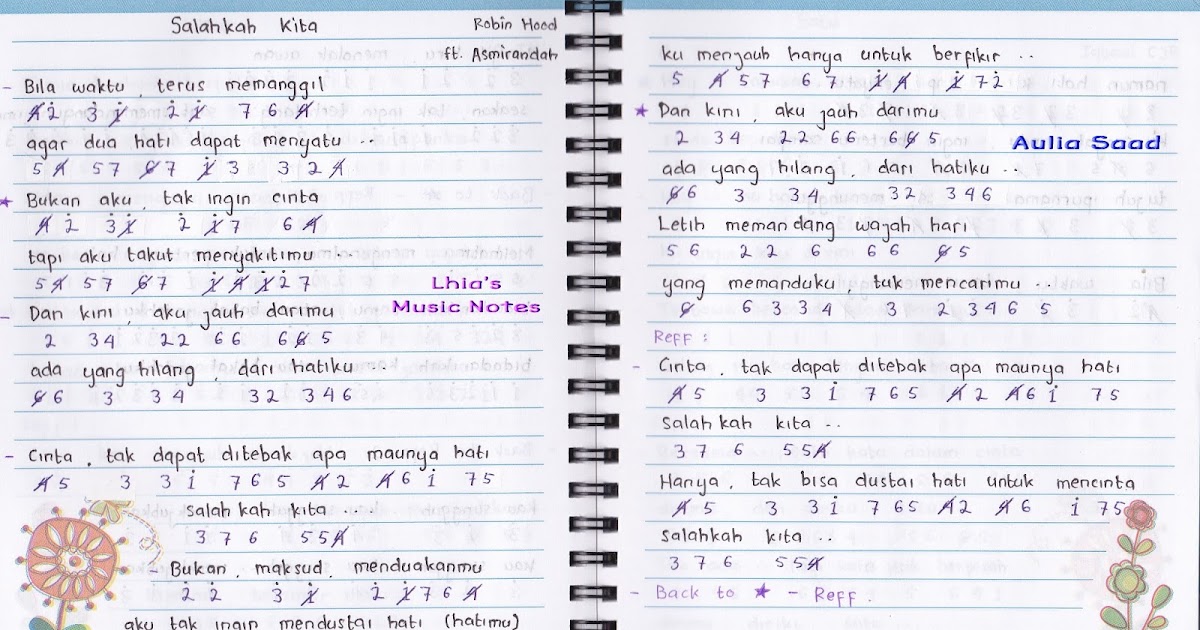 Salahkah Kita
Robin Hood
ft. Asmirandah
- Bila waktu, terus memanggil
4̸ 2̇ 3̇ 1̸̇ 2̇ 1̸̇ 7 6 4̸
agar dua hati dapat menyatu ..
5 4̸ 5 7 6̸ 7 1̸̇ 3 3 2 4̸
★ Bukan aku, tak ingin cinta
4̸ 2̇ 3̇ 1̸̇ 2̇ 1̸̇ 7 6 4̸
tapi aku takut menyakitimu ..
5 4̸ 5 7 6̸ 7 1̸̇ 4̸ 1̸̇ 2̇ 7
- Dan kini, aku jauh darimu
2 3 4 2 2 6 6 6 6̸ 5
ada yang hilang, dari hatiku ...
6̸ 6 3 3 4 3 2 3 4 6
- Cinta, tak dapat ditebak apa maunya hati
4̸ 5 3 3 1̇ 7 6 5 4̸ 2 4̸ 6 1̇ 7 5
Salah kah kita ...
3 7 6 5 5 4̸
Bukan, maksud, menduakanmu
2̇ 2̇ 3̇ 1̸̇ 2̇ 1̸̇ 7 6 4̸
aku tak ingin mendustai hati (hatimu)
Lhia's
Music Notes
ku menjauh hanya untuk berfikir ..
5 4̸ 5 7 6 7 1̸̇ 4̸ 1̸̇ 7 2̇
★ Dan kini, aku jauh darimu
2 3 4 2 2 6 6 6 6̸ 5
Aulia Saad
ada yang hilang, dari hatiku ..
6̸ 6 3 3 4 3 2 3 4 6
Letih memandang wajah hari
5 6 2 2 6 6 6 6̸ 5
yang memanduku, tuk mencarimu ..
6̸ 6 3 3 4 3 2 3 4 6 5
Reff :
- Cinta, tak dapat ditebak apa maunya hati
4̸ 5 3 3 1̇ 7 6 5 4̸ 2 4̸ 6 1̇ 7 5
Salah kah kita ..
3 7 6 5 5 4̸
Hanya, tak bisa dustai hati untuk mencinta
4̸ 5 3 3 1̇ 7 6 5 4̸ 2 4̸ 6 1̇ 7 5
salahkah kita ..
3 7 6 5 5 4̸
- Back to ★ - Reff .